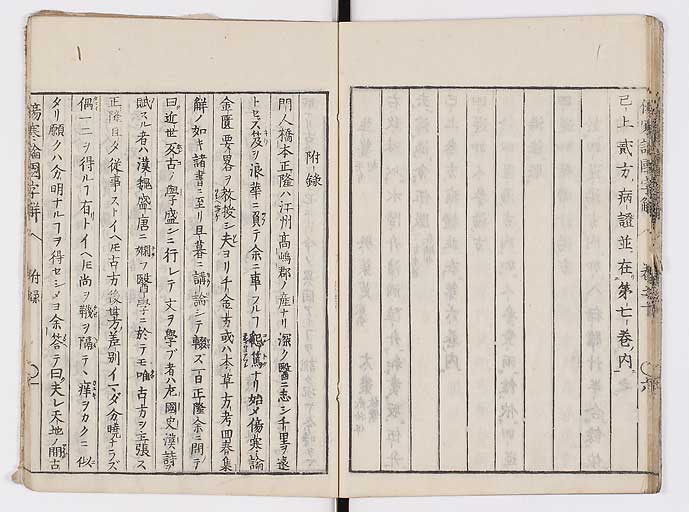 已上貳方病證並在第七卷內
附錄
門人橋本正隆ハ江州高嶋郡ノ産ナリ深ク醫ニ志シ千里ヲ遠
トセズ笈ヲ浪華ニ負テ余ニ事フルフ篤ナリ始メ傷寒論
金匱要畧ヲ教授シ夫ヨリ千金方或ハ本草方考四春集
解ノ如キ諸書ニ至リ且暮ニ講論シテ輟ズ一日正隆余ニ問テ
曰近世天古ノ學盛ンニ行レテ文ヲ學ブ者ハ左國史漢詩
賦スル者ハ漢魏盛唐ニ嫻フ醫學ニ於テモ唯古方ヲ主張ス
正隆且夕從事ストイヘ𪜈古方後世方差別イマダ分曉ナラズ
偶一二ヲ得ルフ有トイヘ𪜈尚ヲ靴ヲ隔テヽ痒ヲカクニ似
タリ願クハ分明ナルフヲ得セシメヨ余答テ曰夫レ天地ノ開古
傷寒論國字解
附錄